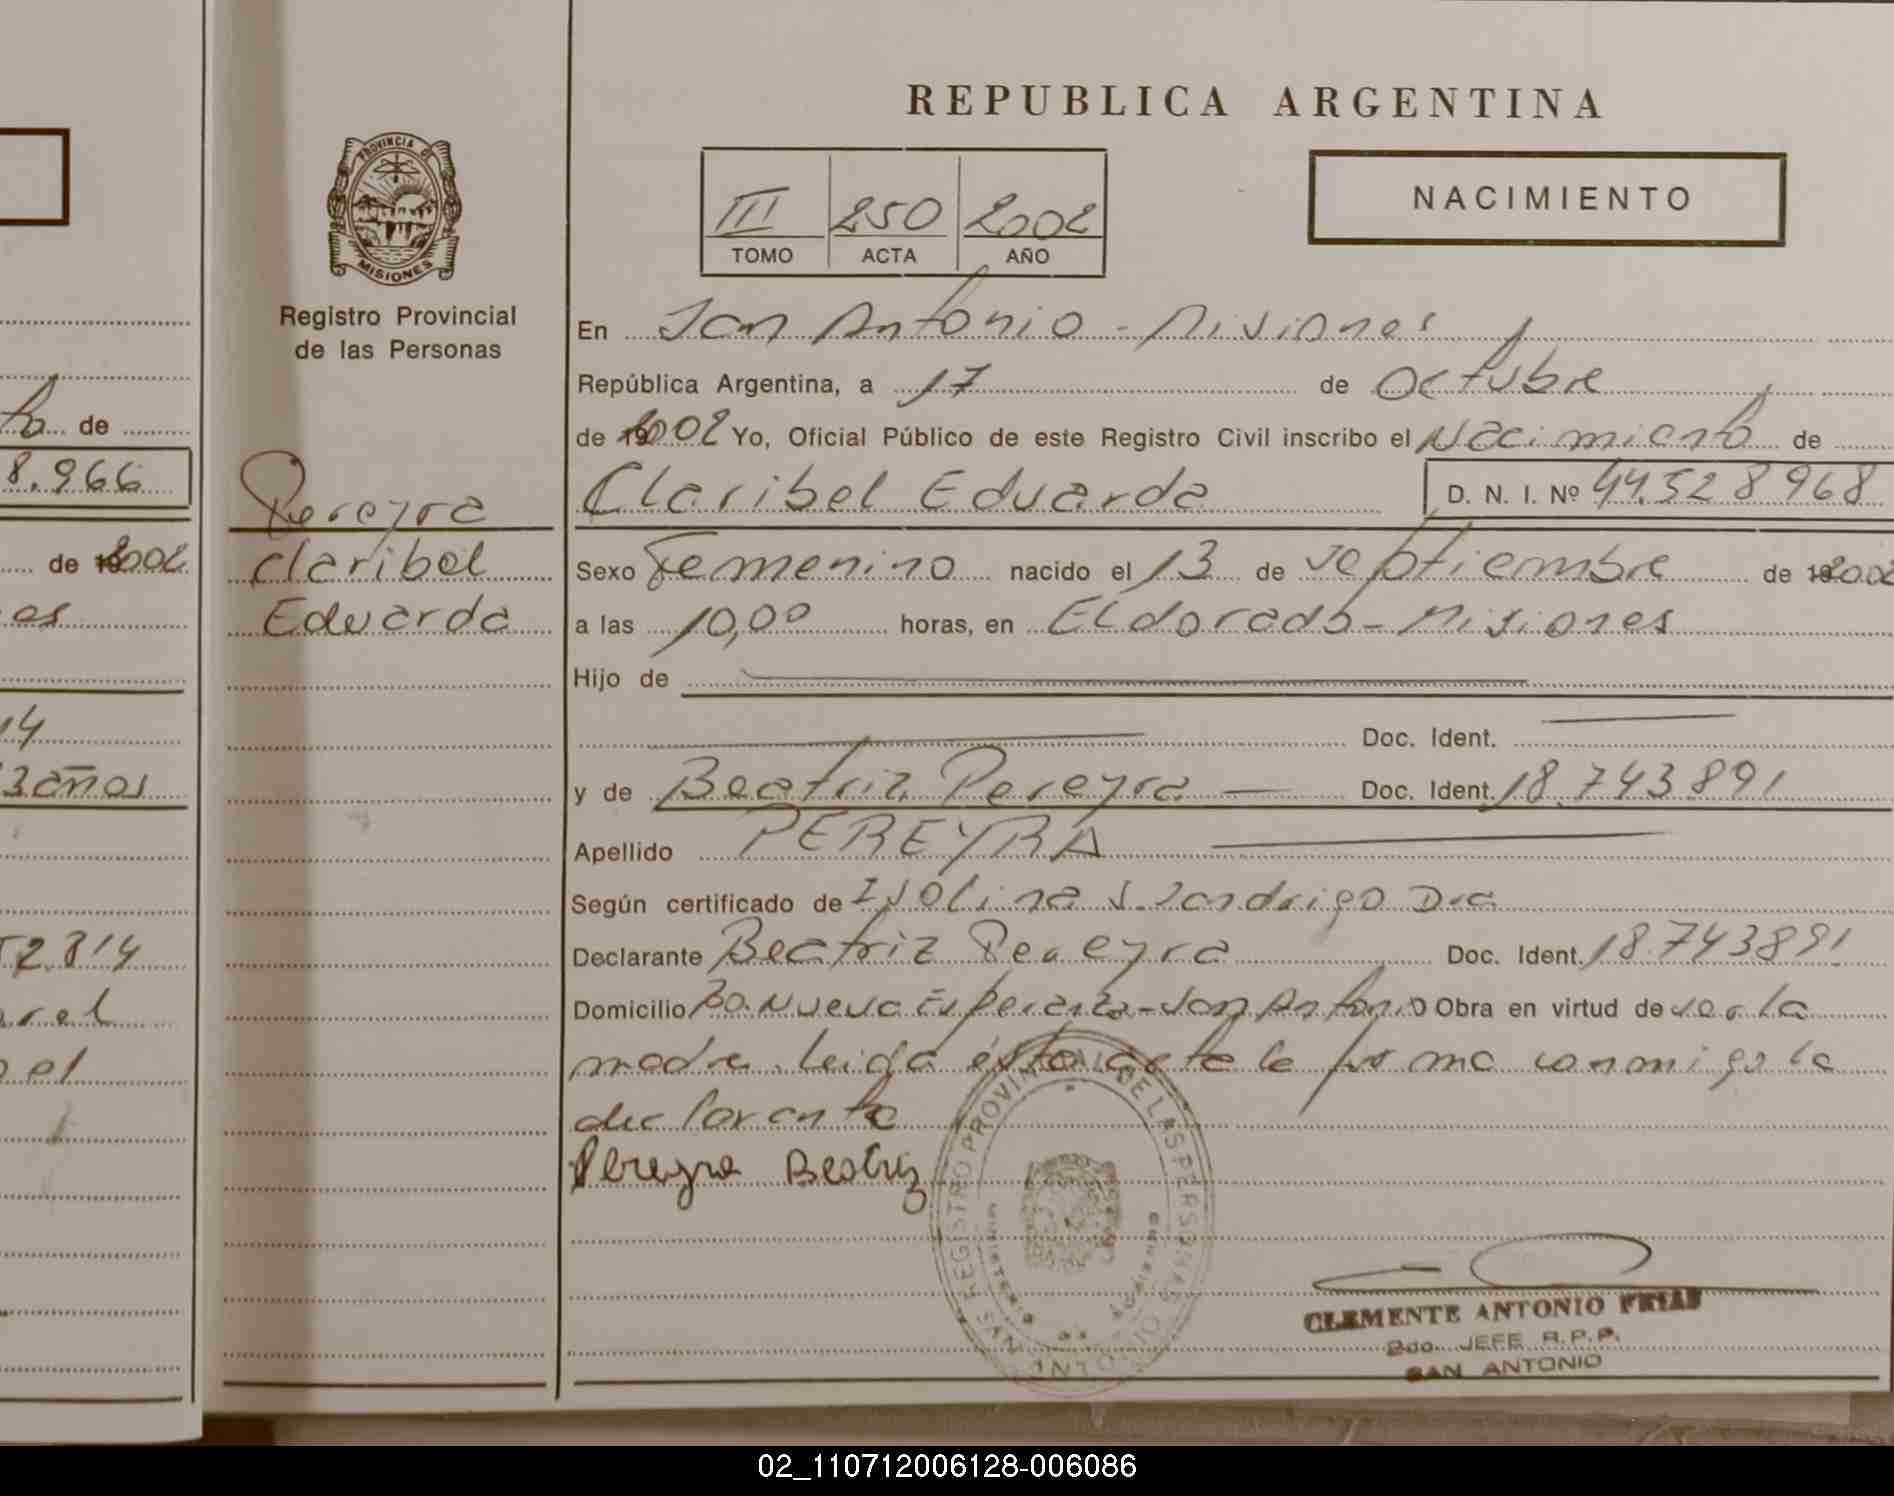 REPUBLICA ARGENTINA
PROVINCIA DE
MISIONES
III 250 2002
TOMO ACTA AÑO
NACIMIENTO
Registro Provincial
de las Personas
En San Antonio - Misiones
República Argentina, a 17 de Octubre
de 2002 Yo, Oficial Público de este Registro Civil inscribo el Nacimiento de
Claribel Eduarda D. N. I. Nº 44.528968
Pereyra
Claribel
Eduarda
Sexo Femenino nacido el 13 de septiembre de 2002
a las 10,00 horas, en Eldorado - Misiones
Hijo de
Doc. Ident.
y de Beatriz Pereyra Doc. Ident. 18.743.891
Apellido PEREYRA
Según certificado de Isolina S. Sandrigo Dra
Declarante Beatriz Pereyra Doc. Ident. 18.743891
Domicilio Bo. Nueva Esperanza - San Antonio Obra en virtud de ser la
madre. leida ésta acta la firma conmigo la
declarante
Pereyra Beatriz
REGISTRO PROVINCIAL DE LAS PERSONAS
SAN ANTONIO
CLEMENTE ANTONIO FRIAS
2do. JEFE R.P.P.
SAN ANTONIO
de
8.966
de 2002
es
14
3 años
52.814
rel
el
02_110712006128-006086